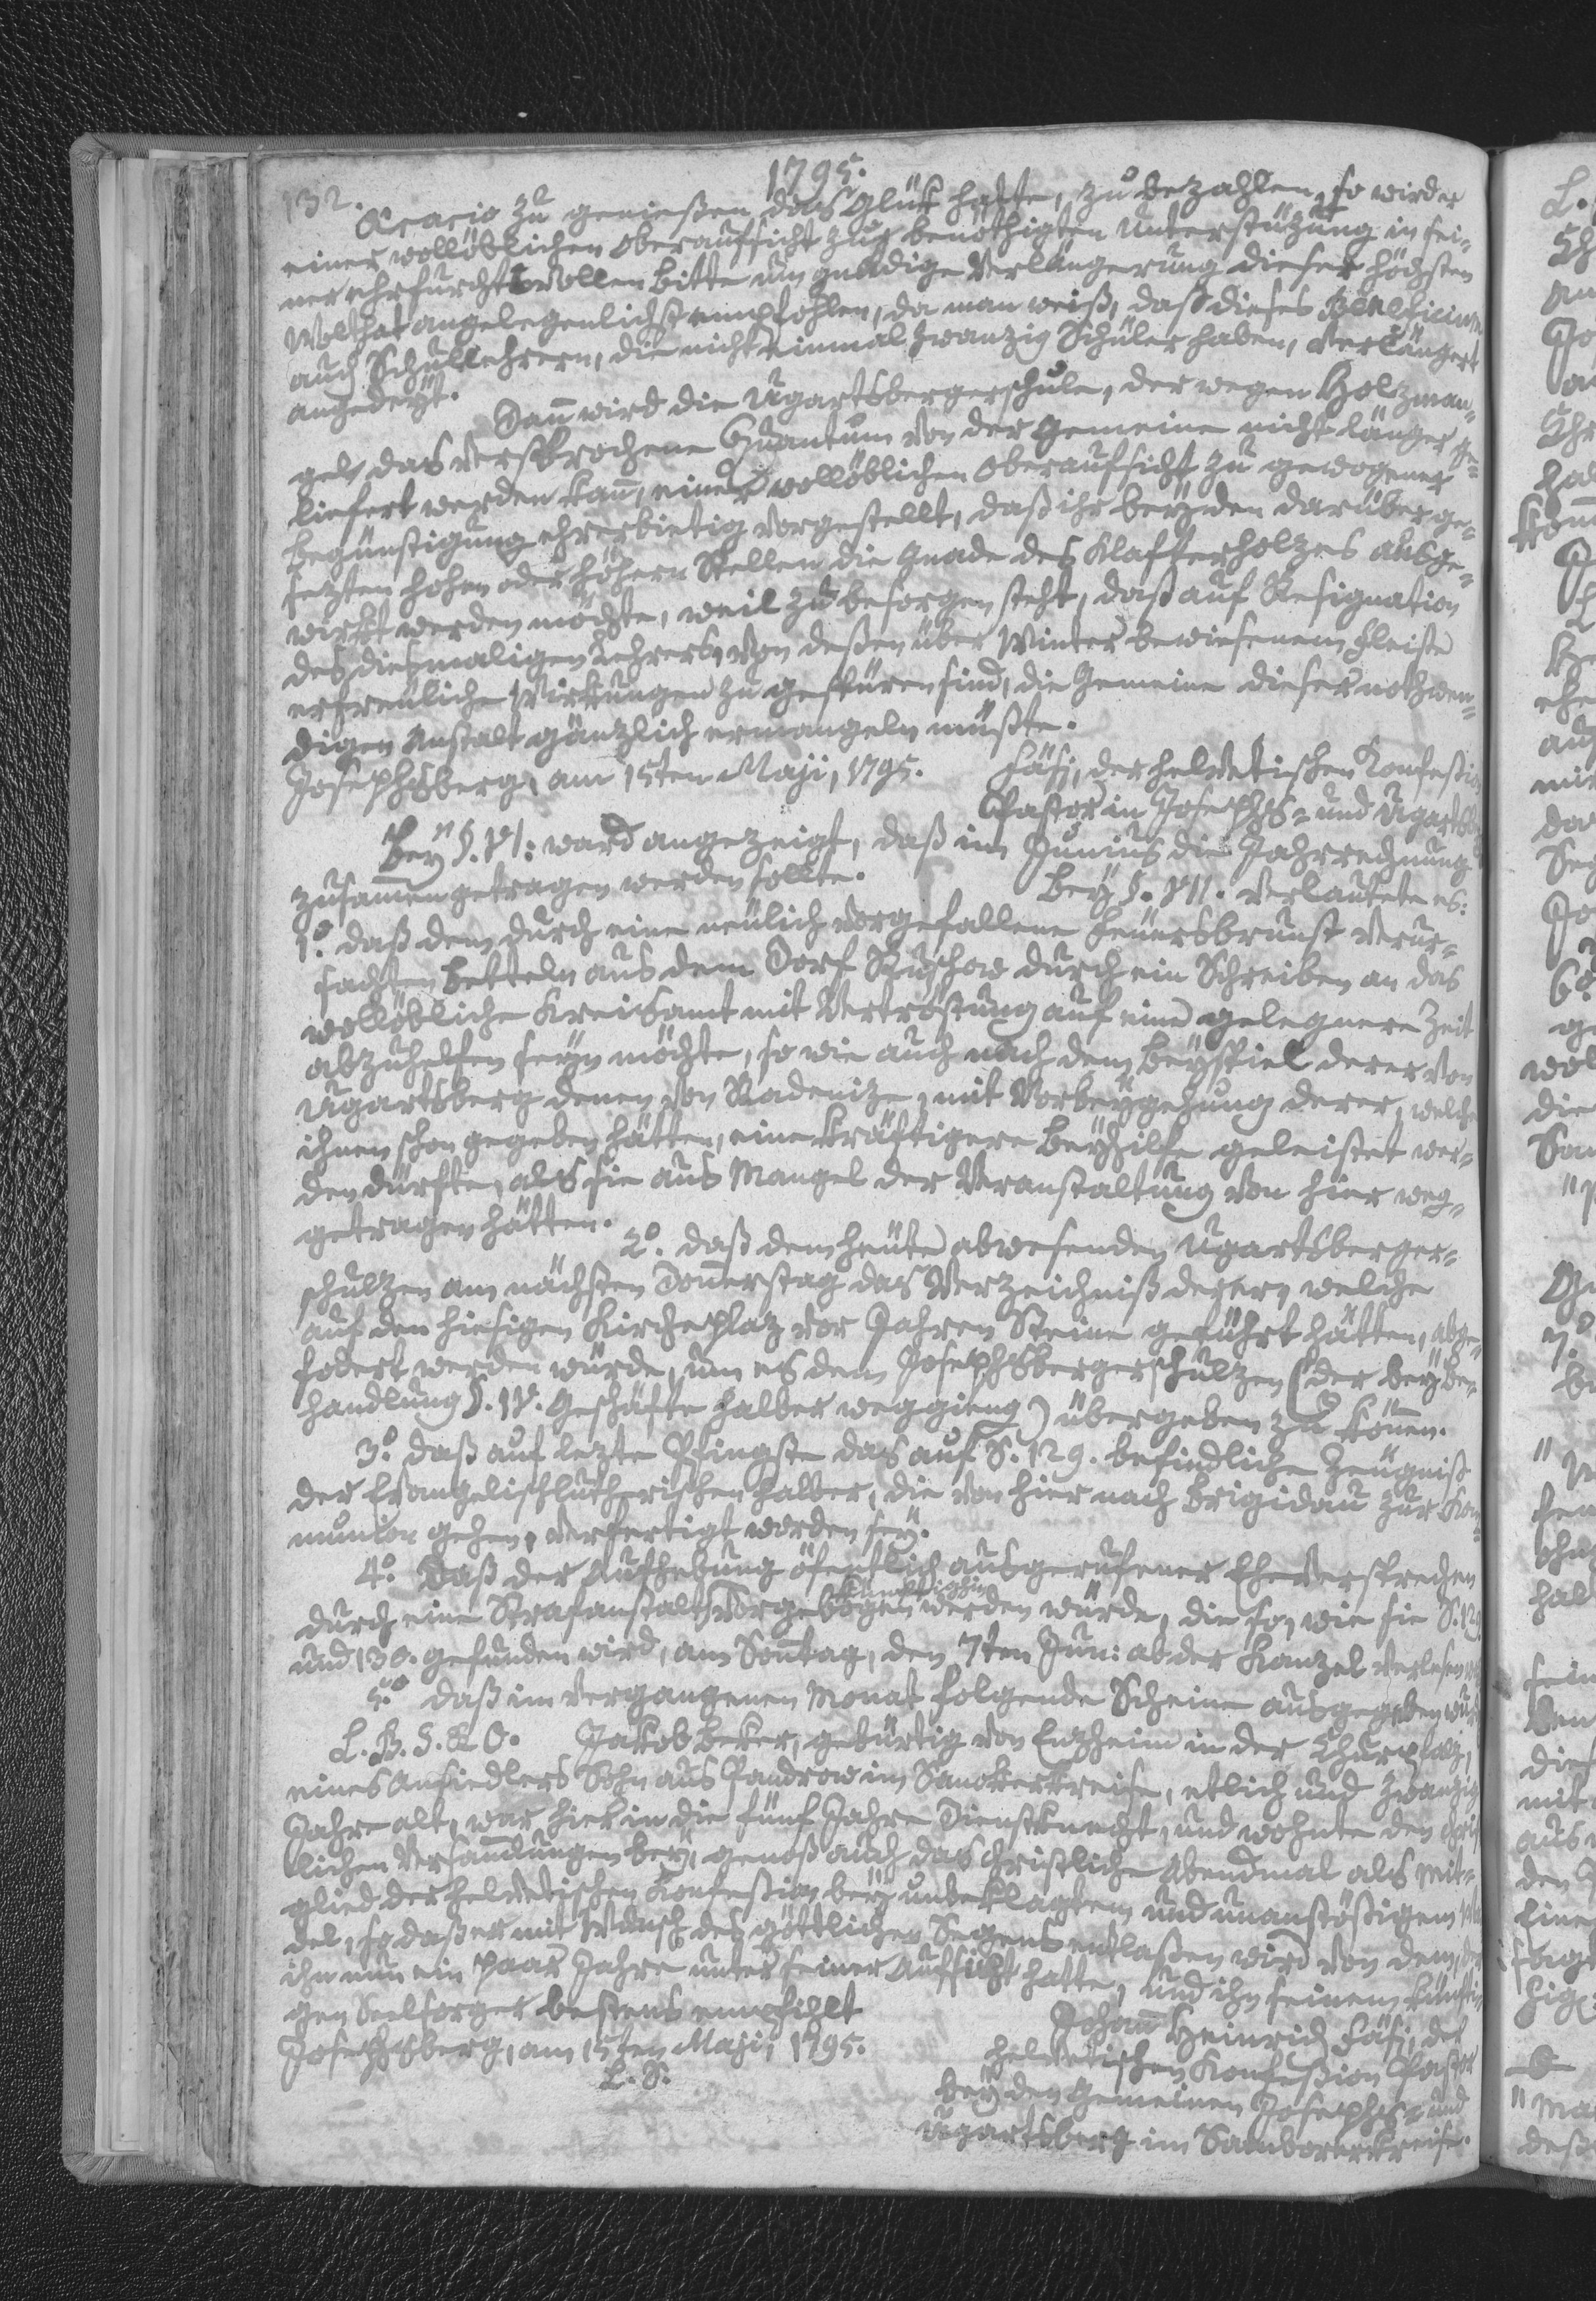 132.
1795.
Acario zu genießen das Glük hatte, zu bezahlen, so wird er
einer wollöblichen Oberaufsicht zur benöthigten Unterstüzung in sei-
ner ehrfurchtsvollen Bitte um gnädige Verlängerung dieser höchsten
Wolthat angelegenlichst empfohlen, da man weiß, daß dieses Beneficium
auch Schullehrern, die nicht einmal zwanzig Schüler haben, verlängert
angedeyt.
Dann wird die Ugartsbergerschule, der wegen Holzman-
gels das versprochene Quantum von der Gemeine nicht länger ge-
liefert werden kann, einer wollöblichen Oberaufsicht zu gewogener
Begünstigung ehrerbietig vorgestellt, daß ihr bey den darüber ge-
sezten hohen oder höhern Stellen die Gnade des Klafterholzes ausge-
wirkt werden möchte, weil zu besorgen steht, daß auf Resignation
des diesmaligen Lehrers, von deßen über Winter bewiesenem Fleiße
erfreuliche Wirkungen zu gespüren sind, die Gemeine dieser nothwen-
digen Anstalt gänzlich ermangeln müßte.
Josephsberg, am 15ten Maji, 1795. Fäsi, der helvetischen Konfeßion
Pastor in Josephs- und Ugartsberg
Bey §. VI: ward angezeigt, daß im Junius die Jahrrechnung
zusammengetragen werden sollte. Bey §. VII. verlautete es:
1.° daß dem durch eine neulich vorgefallene Feuersbrunst verur-
sachten Betteln aus dem Dorf durch ein Schreiben an das
wollöbliche Kreisamt mit Vertröstung auf eine gelegnere Zeit
abzuhelfen seyn möchte, so wie auch nach dem Beyspiel derer von
Ugartsberg denen von Radenize, mit Vorbeygehung derer, welche
ihnen schon gegeben hätten, eine kräftigere Beyhilfe geleistet wer-
den dürfte, als sie aus Mangel der Veranstaltung von hier weg-
getragen hätten.
2.° daß dem heute abwesenden Ugartsberger-
schulzen am nächsten Donnerstag das Verzeichniß derer, welche
auf den hiesigen Kirchplaz vor Jahren Steine geführt hätten, abge-
fodert werden würde, um es dem Josephsbergerschulzen (der bey Be-
handlung §. IV. Geschäfte halber weggieng) übergeben zu können.
3.° daß auf lezte Pfingste das auf S. 129. befindliche Zeugniß
der Evangelischlutherischen halber, die von hier nach Brigidau zur Kom-
munion gehen, verfertigt worden sey.
4.° Daß der Aufhebung öfentlich ausgerufener Eheversprechen
künftighin
durch eine Strafanstalt vorgebogen werden würde, die so, wie sie S. 129.
und 130. gefunden wird, am Sonntag, den 7ten Jun: ab der Kanzel verlesen
5.° daß im vergangenen Monat folgende Scheine ausgegeben
L. B. S. & O. Jakob Beker, gebürtig von Enzheim in der Churpfalz,
eines Ansiedlers Sohn aus Pandrow im Sanokerkreise, etlich und zwanzig
Jahre alt, war hier in die fünf Jahre Dienstknecht, und wohnte den christ-
lichen Versammlungen bey, genoß auch das christliche Abendmal als Mit-
glied der helvetischen Konfeßion bey unbeklagtem und unanstößigem
del, so daß er mit Wunsch des göttlichen Segens entlaßen wird von dem, der
ihn nun ein paar Jahre unter seiner Aufsicht hatte, und ihn seinem künfti-
gen Seelsorger bestens empfihlt
Josephsberg, am 15ten Maji, 1795.
L. S.
Johann Heinrich Fäsi, der
helvetischen Konfeßion Pastor
bey den Gemeinen Josephs- und
Ugartsberg im Samborerkreise.